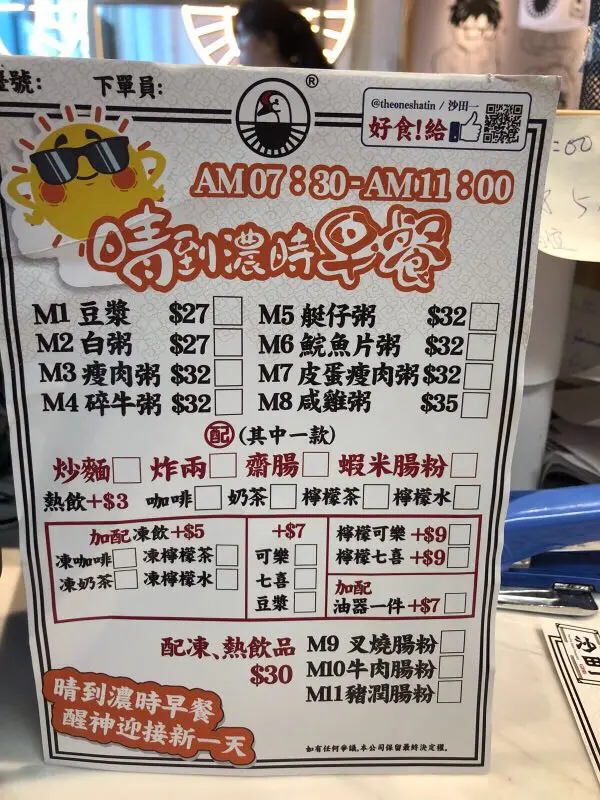 號: 下單員:
®
@theoneshatin / 沙田一
好食!給
AM07:30-AM11:00
晴到濃時早餐
M1 豆漿 $27 M5 艇仔粥 $32
M2 白粥 $27 M6 鯇魚片粥 $32
M3 瘦肉粥 $32 M7 皮蛋瘦肉粥 $32
M4 碎牛粥 $32 M8 咸雞粥 $35
配 (其中一款)
炒麵 炸兩 齋腸 蝦米腸粉
熱飲+$3 咖啡 奶茶 檸檬茶 檸檬水
加配凍飲+$5
凍咖啡 凍檸檬茶
凍奶茶 凍檸檬水
+$7
可樂
七喜
豆漿
檸檬可樂 +$9
檸檬七喜 +$9
加配
油器一件 +$7
配凍、熱飲品
$30
M9 叉燒腸粉
M10 牛肉腸粉
M11 豬潤腸粉
晴到濃時早餐
醒神迎接新一天
如有任何爭議,本公司保留最終決定權。
沙田